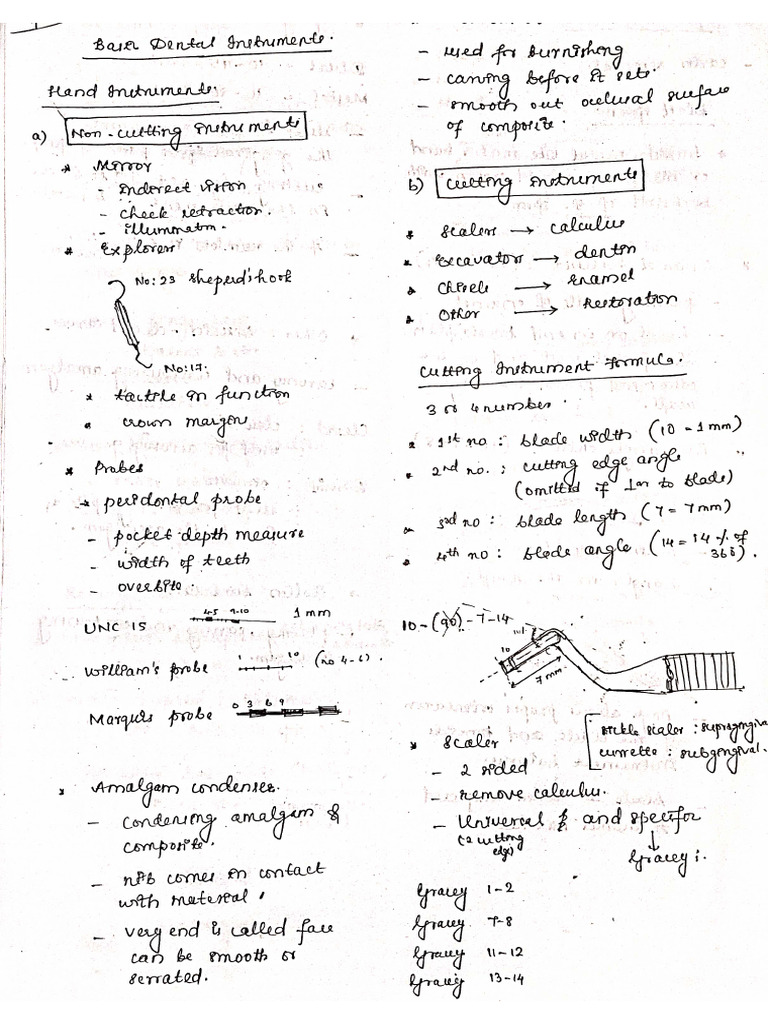 Basic Dental Instruments.
Hand Instruments.
a) Non-cutting instruments
* Mirror
- indirect vision
- cheek retraction.
- illumination.
* Explorers
No: 23 sheperd's hook
No: 17.
* tactile in function
* crown margin
* Probes
* peridontal probe
- pocket depth measure
- width of teeth
- overbite.
UNC 15 4-5 9-10 1 mm
William's probe 1 10 (no 4-6).
Marquis probe 0 3 6 9
* Amalgam condenser.
- condensing amalgam &
composite.
- nib comes in contact
with material.
- very end is called face
can be smooth or
serrated.
- used for burnishing
- carving before it sets.
- smooth out occlusal surface
of composite.
b) Cutting instruments
* Scalers → calculus
* Excavators → dentin
* Chisels → Enamel
* Other → Restoration
Cutting Instrument Formula.
3 or 4 number.
* 1st no: blade width (10 - 1 mm)
* 2nd no.: cutting edge angle
(omitted if ⊥ar to blade)
3rd no: blade length (7 = 7 mm)
* 4th no: blade angle (14 = 14 % of
360).
10-(90)-7-14
10
7 mm
* Scaler
- 2 sided
- remove calculus.
- Universal & and specifor
(2 cutting
edge)
Gracey
sickle scaler: supragingival
currette: subgingival.
Gracey 1-2
Gracey 7-8
Gracey 11-12
Gracey 13-14